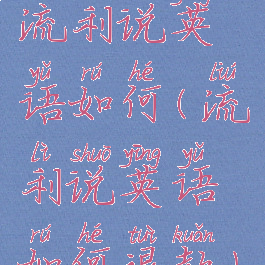 流利说英
yǔ rú hé liú
语如何(流
lì shuō yīng yǔ
利说英语
rú hé tuì kuǎn
如何退款)